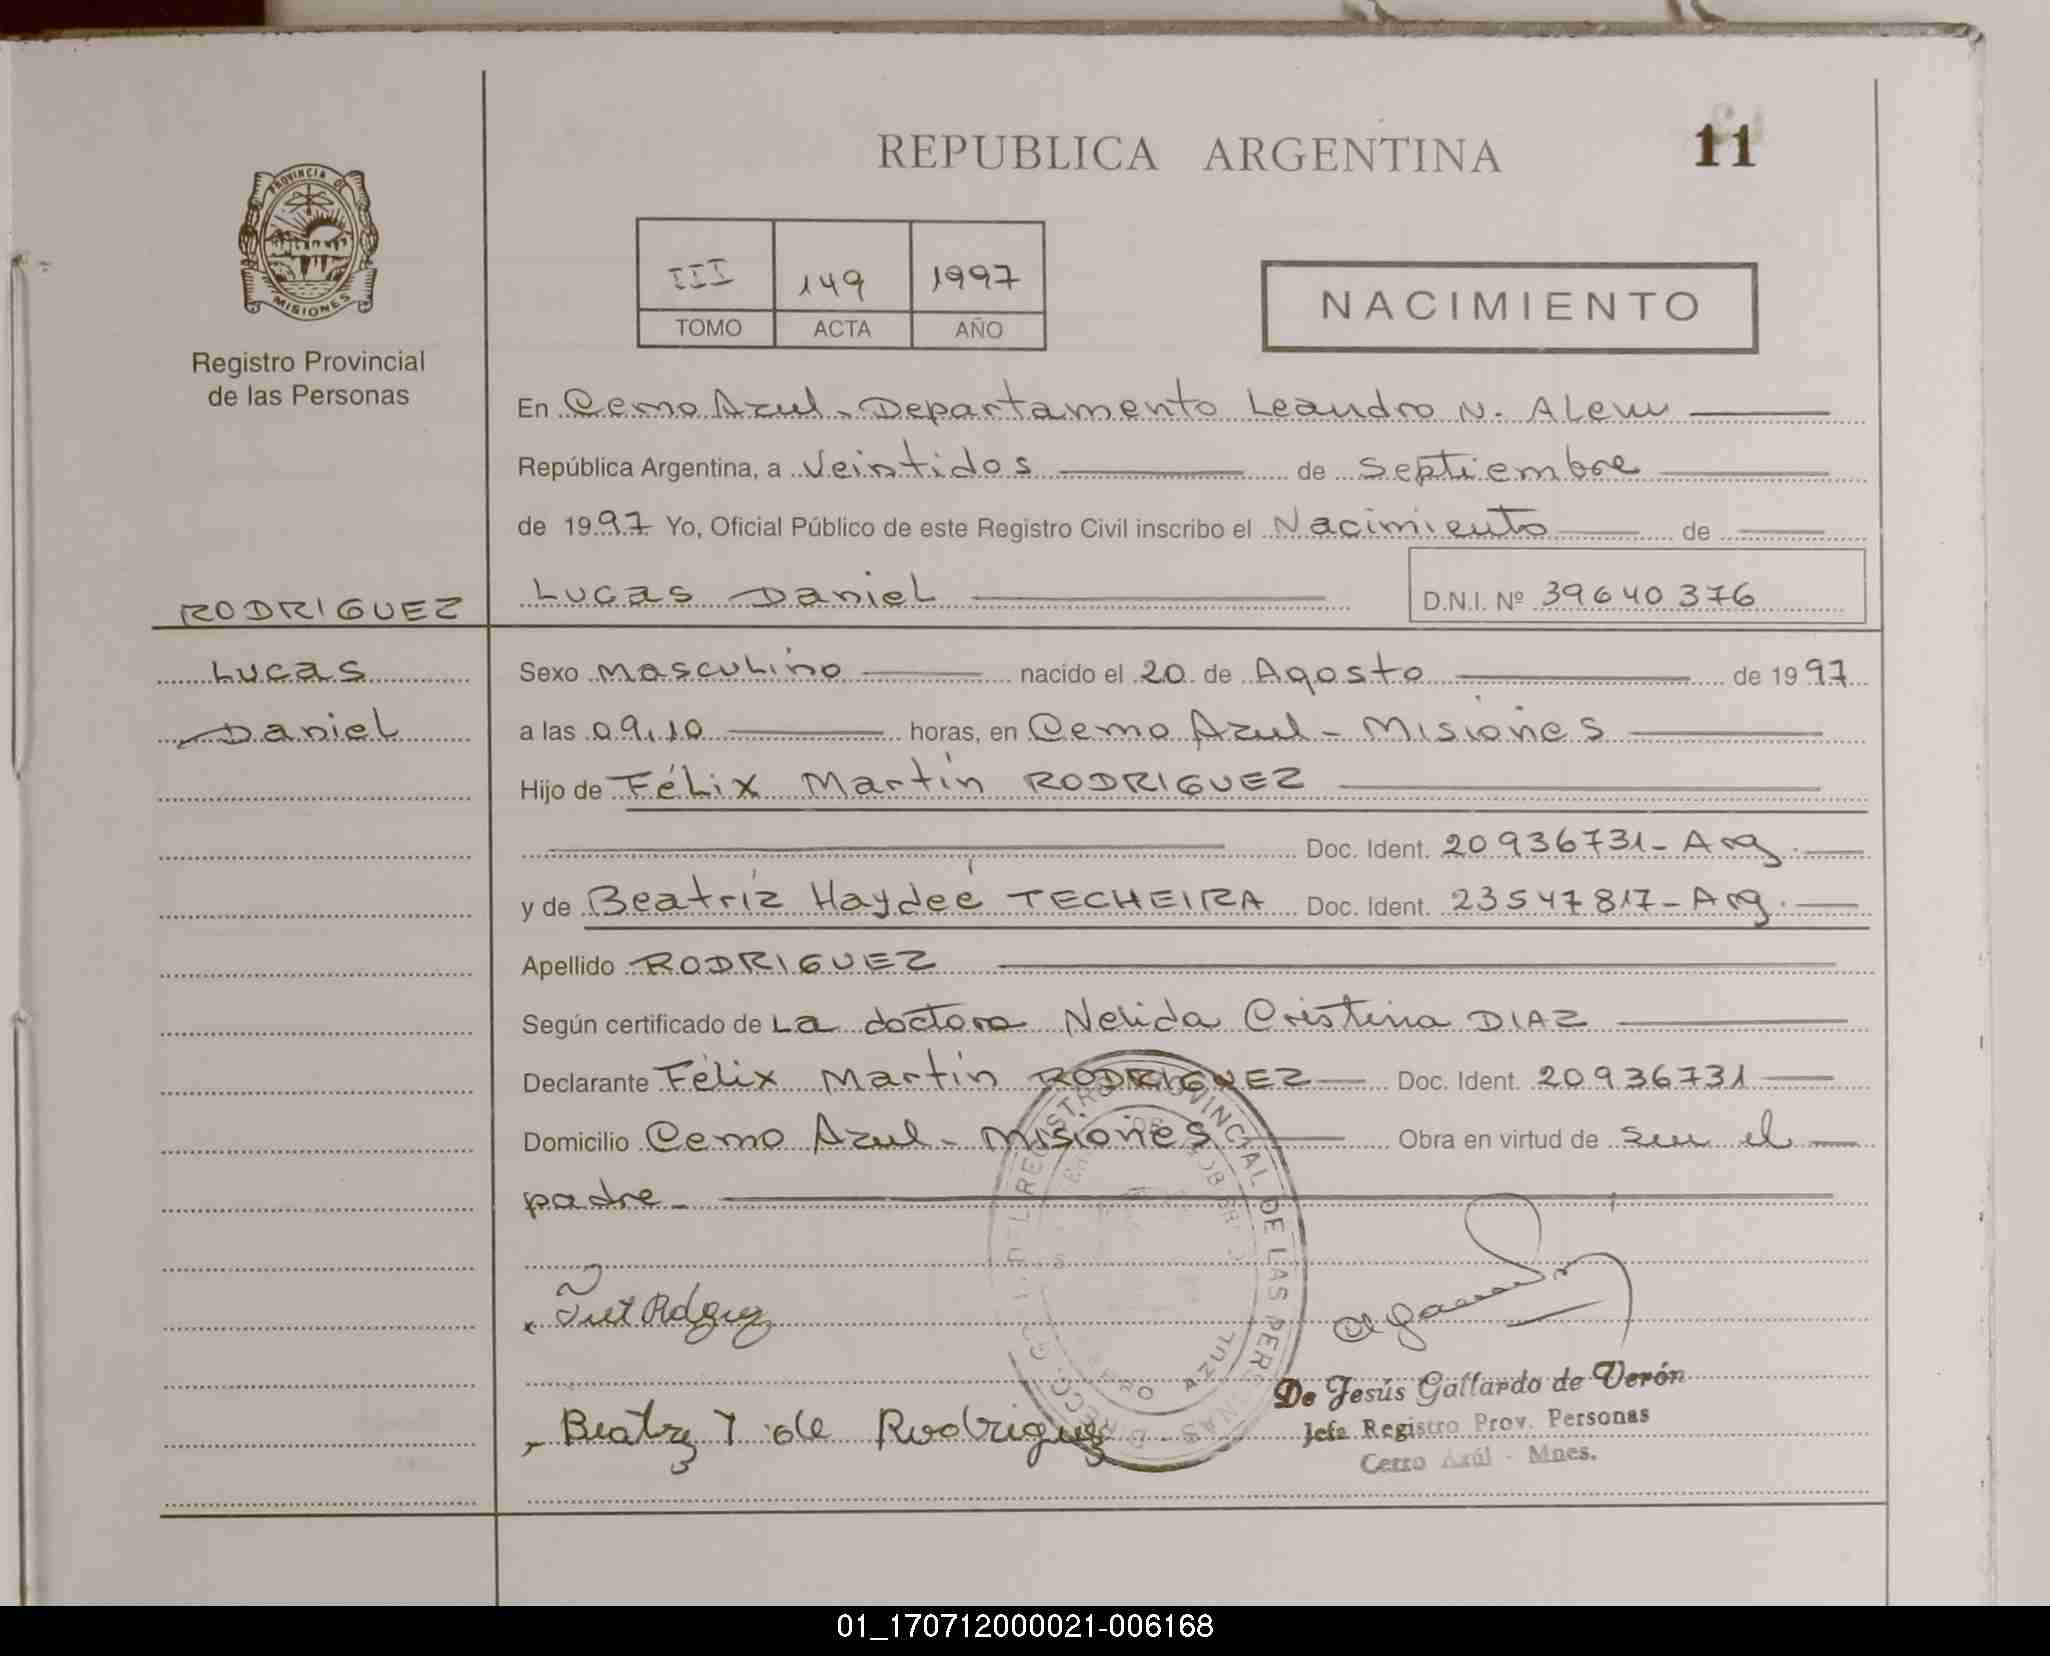 PROVINCIA DE
MISIONES
Registro Provincial
de las Personas
RODRIGUEZ
Lucas
Daniel
REPUBLICA ARGENTINA
11
III 149 1997
TOMO ACTA AÑO
NACIMIENTO
En Cerro Azul - Departamento Leandro N. Alem
República Argentina, a Veintidos de Septiembre
de 1997 Yo, Oficial Público de este Registro Civil inscribo el Nacimiento de
Lucas Daniel D.N.I. Nº 39640376
Sexo Masculino nacido el 20 de Agosto de 1997
a las 09,10 horas, en Cerro Azul - Misiones
Hijo de Félix Martín RODRIGUEZ
Doc. Ident. 20936731 - Arg.
y de Beatríz Haydeé TECHEIRA Doc. Ident. 23547817 - Arg.
Apellido RODRIGUEZ
Según certificado de La doctora Nelida Cristina DIAZ
Declarante Félix Martín RODRIGUEZ Doc. Ident. 20936731
Domicilio Cerro Azul - Misiones Obra en virtud de ser el
padre -
REGISTRO PROVINCIAL DE LAS PERSONAS
AZUL
Beatrz T de Rodriguez
De Jesús Gallardo de Verón
Jefa Registro Prov. Personas
Cerro Azúl - Mnes.
01_170712000021-006168